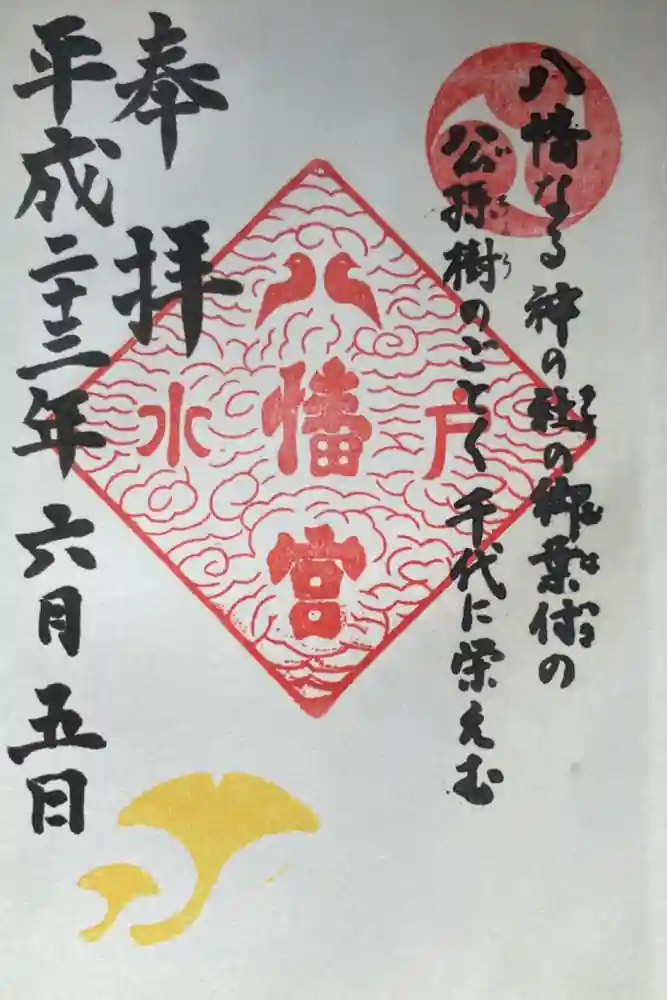 八幡なる神の社の御葉付の
公孫樹のごとく千代に栄えむ
八幡宮
水戸
奉拝
平成二十三年六月五日